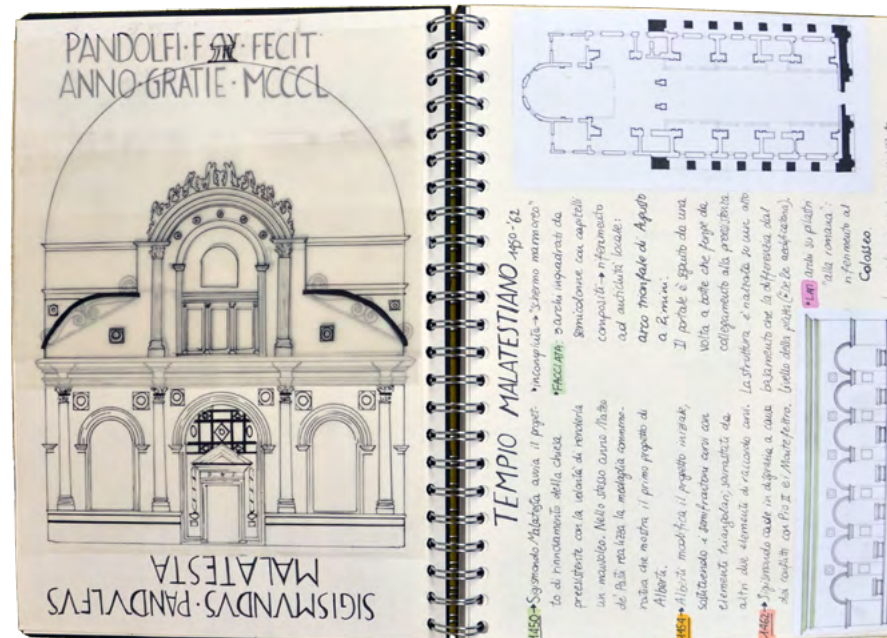 PANDOLFI·F· FECIT
ANNO·GRATIE·MCCCL
SIGISMVNDVS·PANDVLFVS
MALATESTA
TEMPIO MALATESTIANO 1450-'62
1450→ Sigismondo Malatesta avvia il proget-
to di rinnovamento della chiesa
preesistente con la volontà di renderla
un mausoleo. Nello stesso anno Matteo
de' Pasti realizza la medaglia commemo-
rativa che mostra il primo progetto di
Alberti.
1454→ Alberti modifica il progetto iniziale,
sostituendo i semifrontoni curvi con
elementi triangolari, sovrastati da
altri due elementi di raccordo curvi.
1462→ Sigismondo cade in disgrazia a causa
dei conflitti con Pio II e i Montefeltro.
•incompiuta→ "schermo marmoreo"
•FACCIATA: 3 archi inquadrati da
semicolonne con capitelli
compositi→ riferimento
ad antichità locale:
arco trionfale di Agusto
a Rimini.
Il portale è seguito da una
volta a botte che funge da
collegamento alla preesistenza.
La struttura è rialzata su un alto
basamento che la differenzia dal
livello della piazza
•LATI: archi su pilastri
"alla romana":
riferimento al
Colosseo.